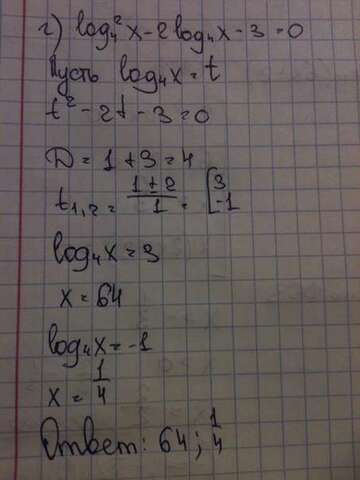 г) log₄²x - 2log₄x - 3 = 0
Пусть log₄x = t
t² - 2t - 3 = 0
D = 1 + 3 = 4
t₁,₂ = (1 ± 2)/1 = [3 -1
log₄x = 3
x = 64
log₄x = -1
x = 1/4
Ответ: 64; 1/4